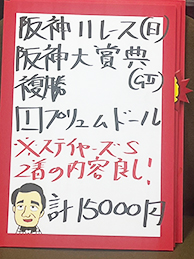 阪神11レース(日)
阪神大賞典
複勝 (GⅡ)
1 プリュムドール
※ステイヤーズS
2着の内容良し!
計15000円